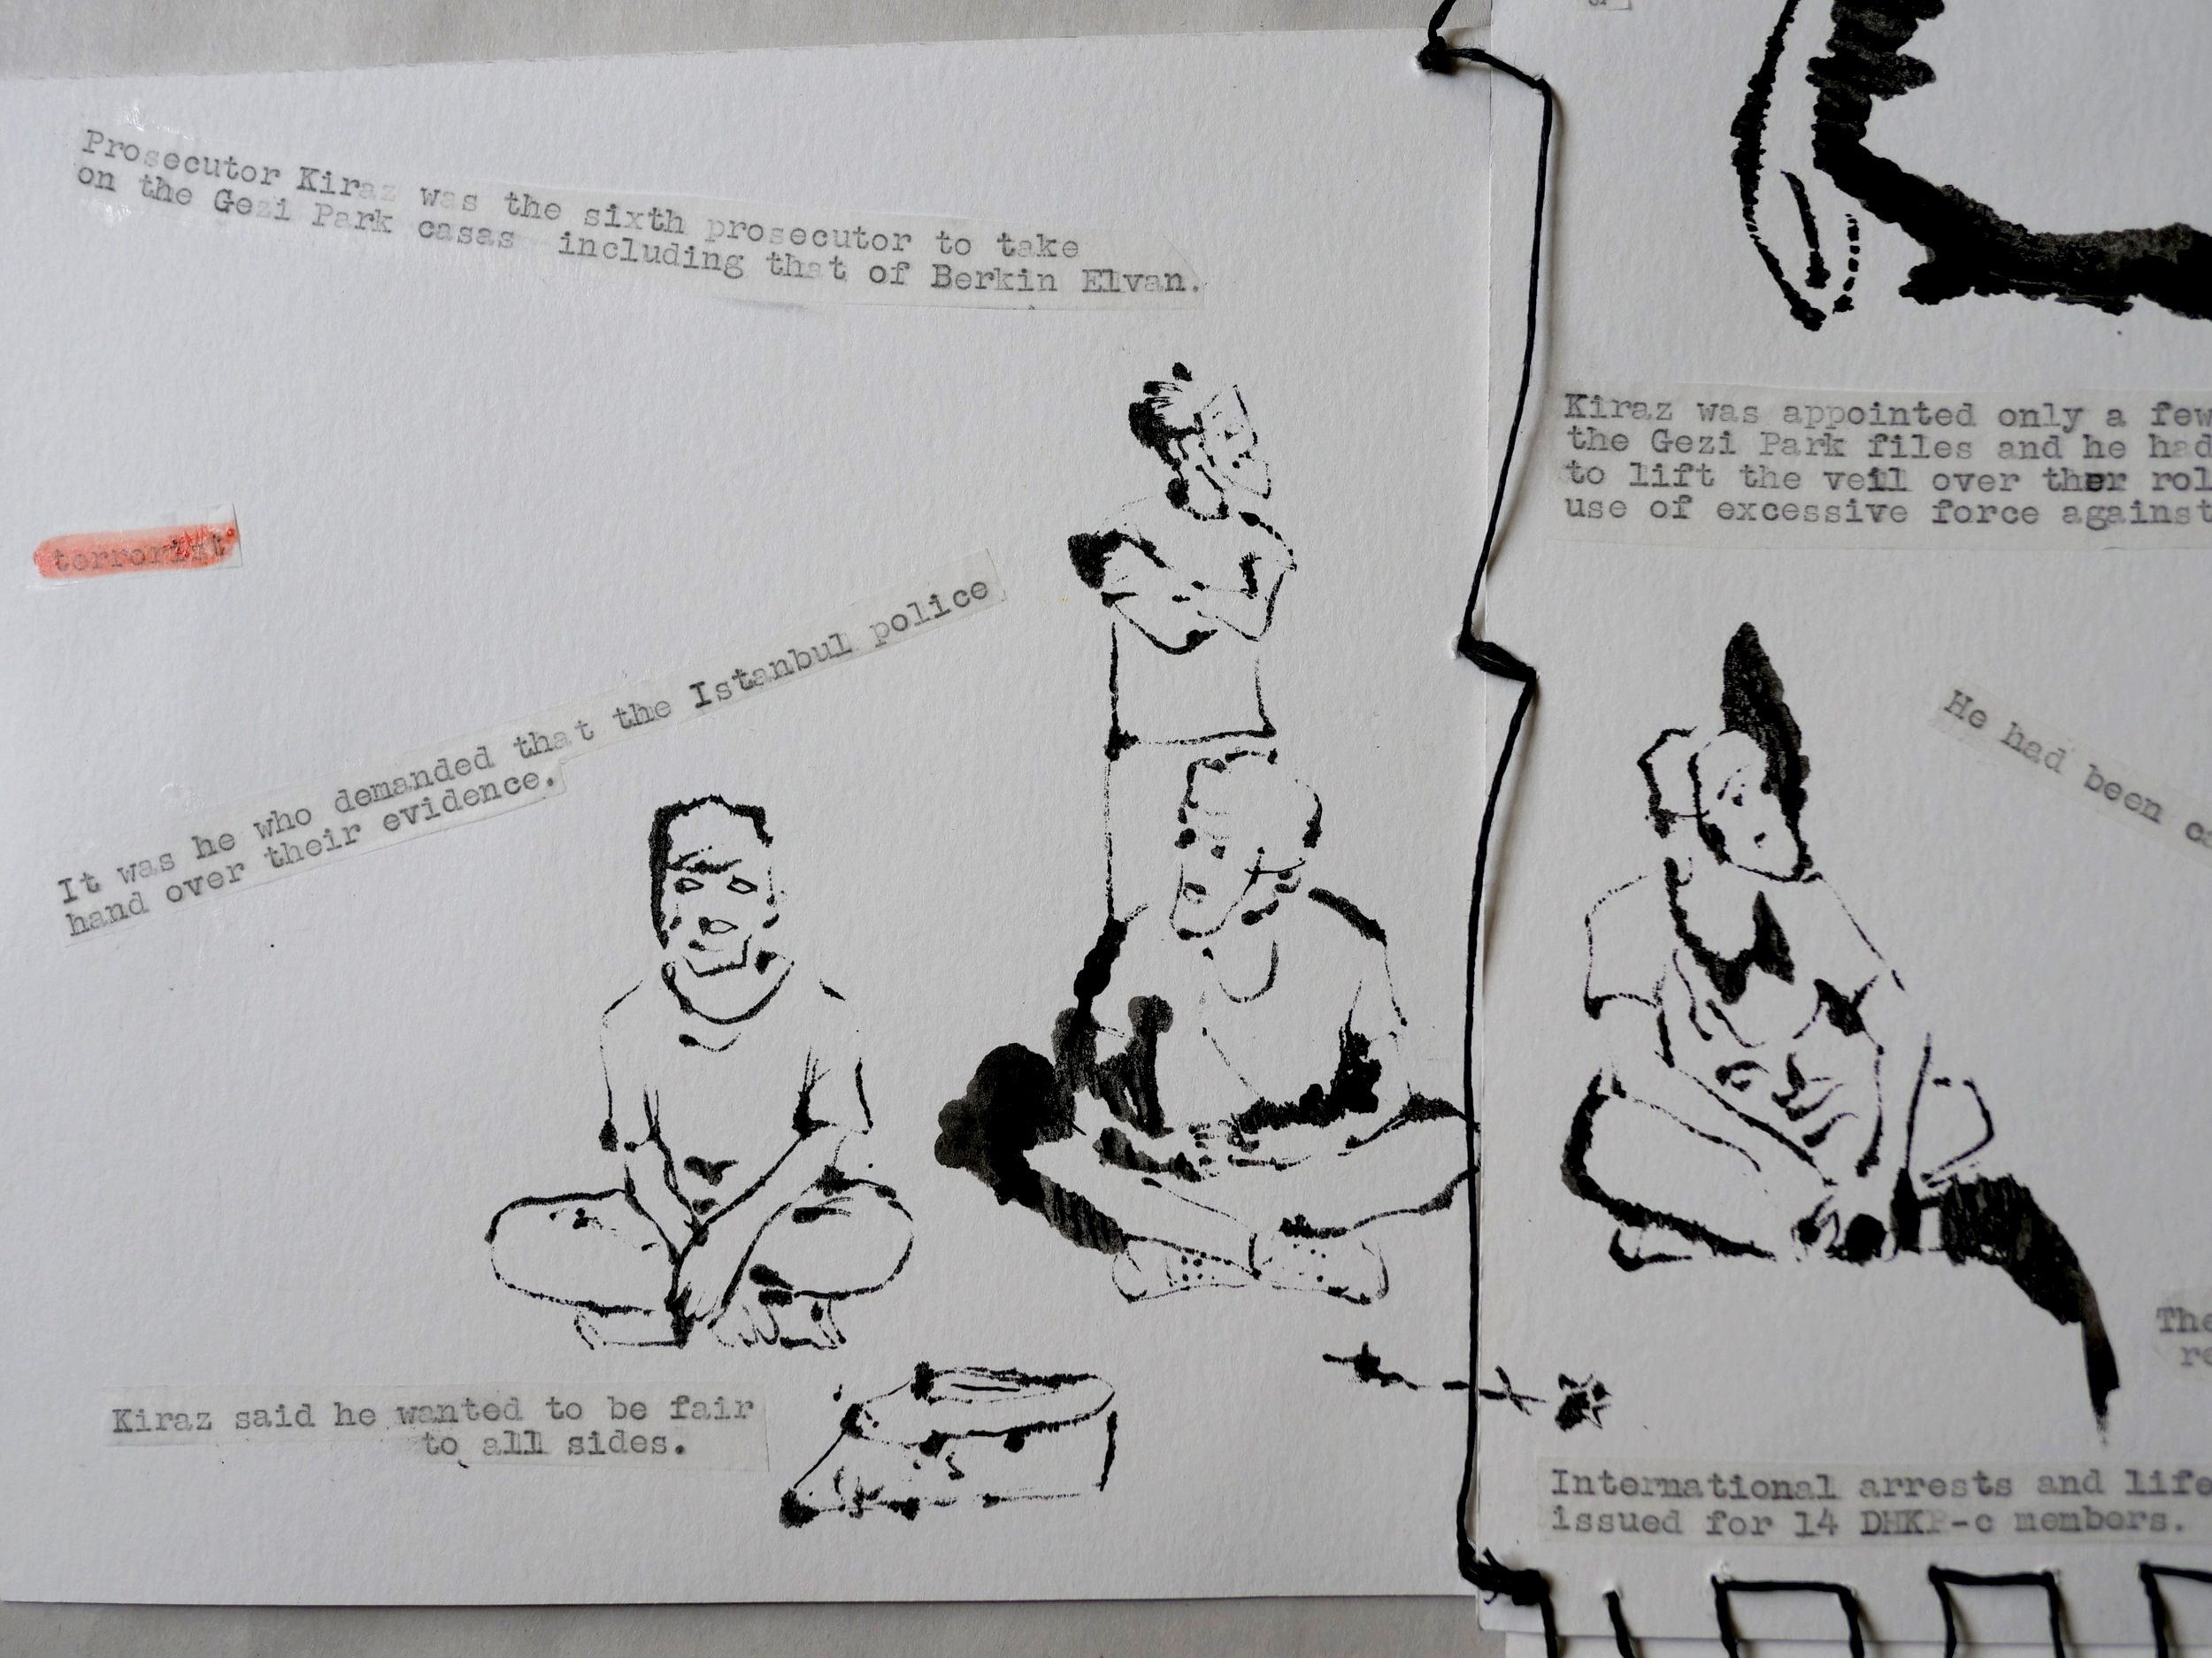 Prosecutor Kiraz was the sixth prosecutor to take
on the Gezi Park casas including that of Berkin Elvan.
terrorist
It was he who demanded that the Istanbul police
hand over their evidence.
Kiraz said he wanted to be fair
to all sides.
Kiraz was appointed only a few
the Gezi Park files and he had
to lift the veil over ther rol
use of excessive force against
He had been ca
The
re
International arrests and life
issued for 14 DHKP-c members.